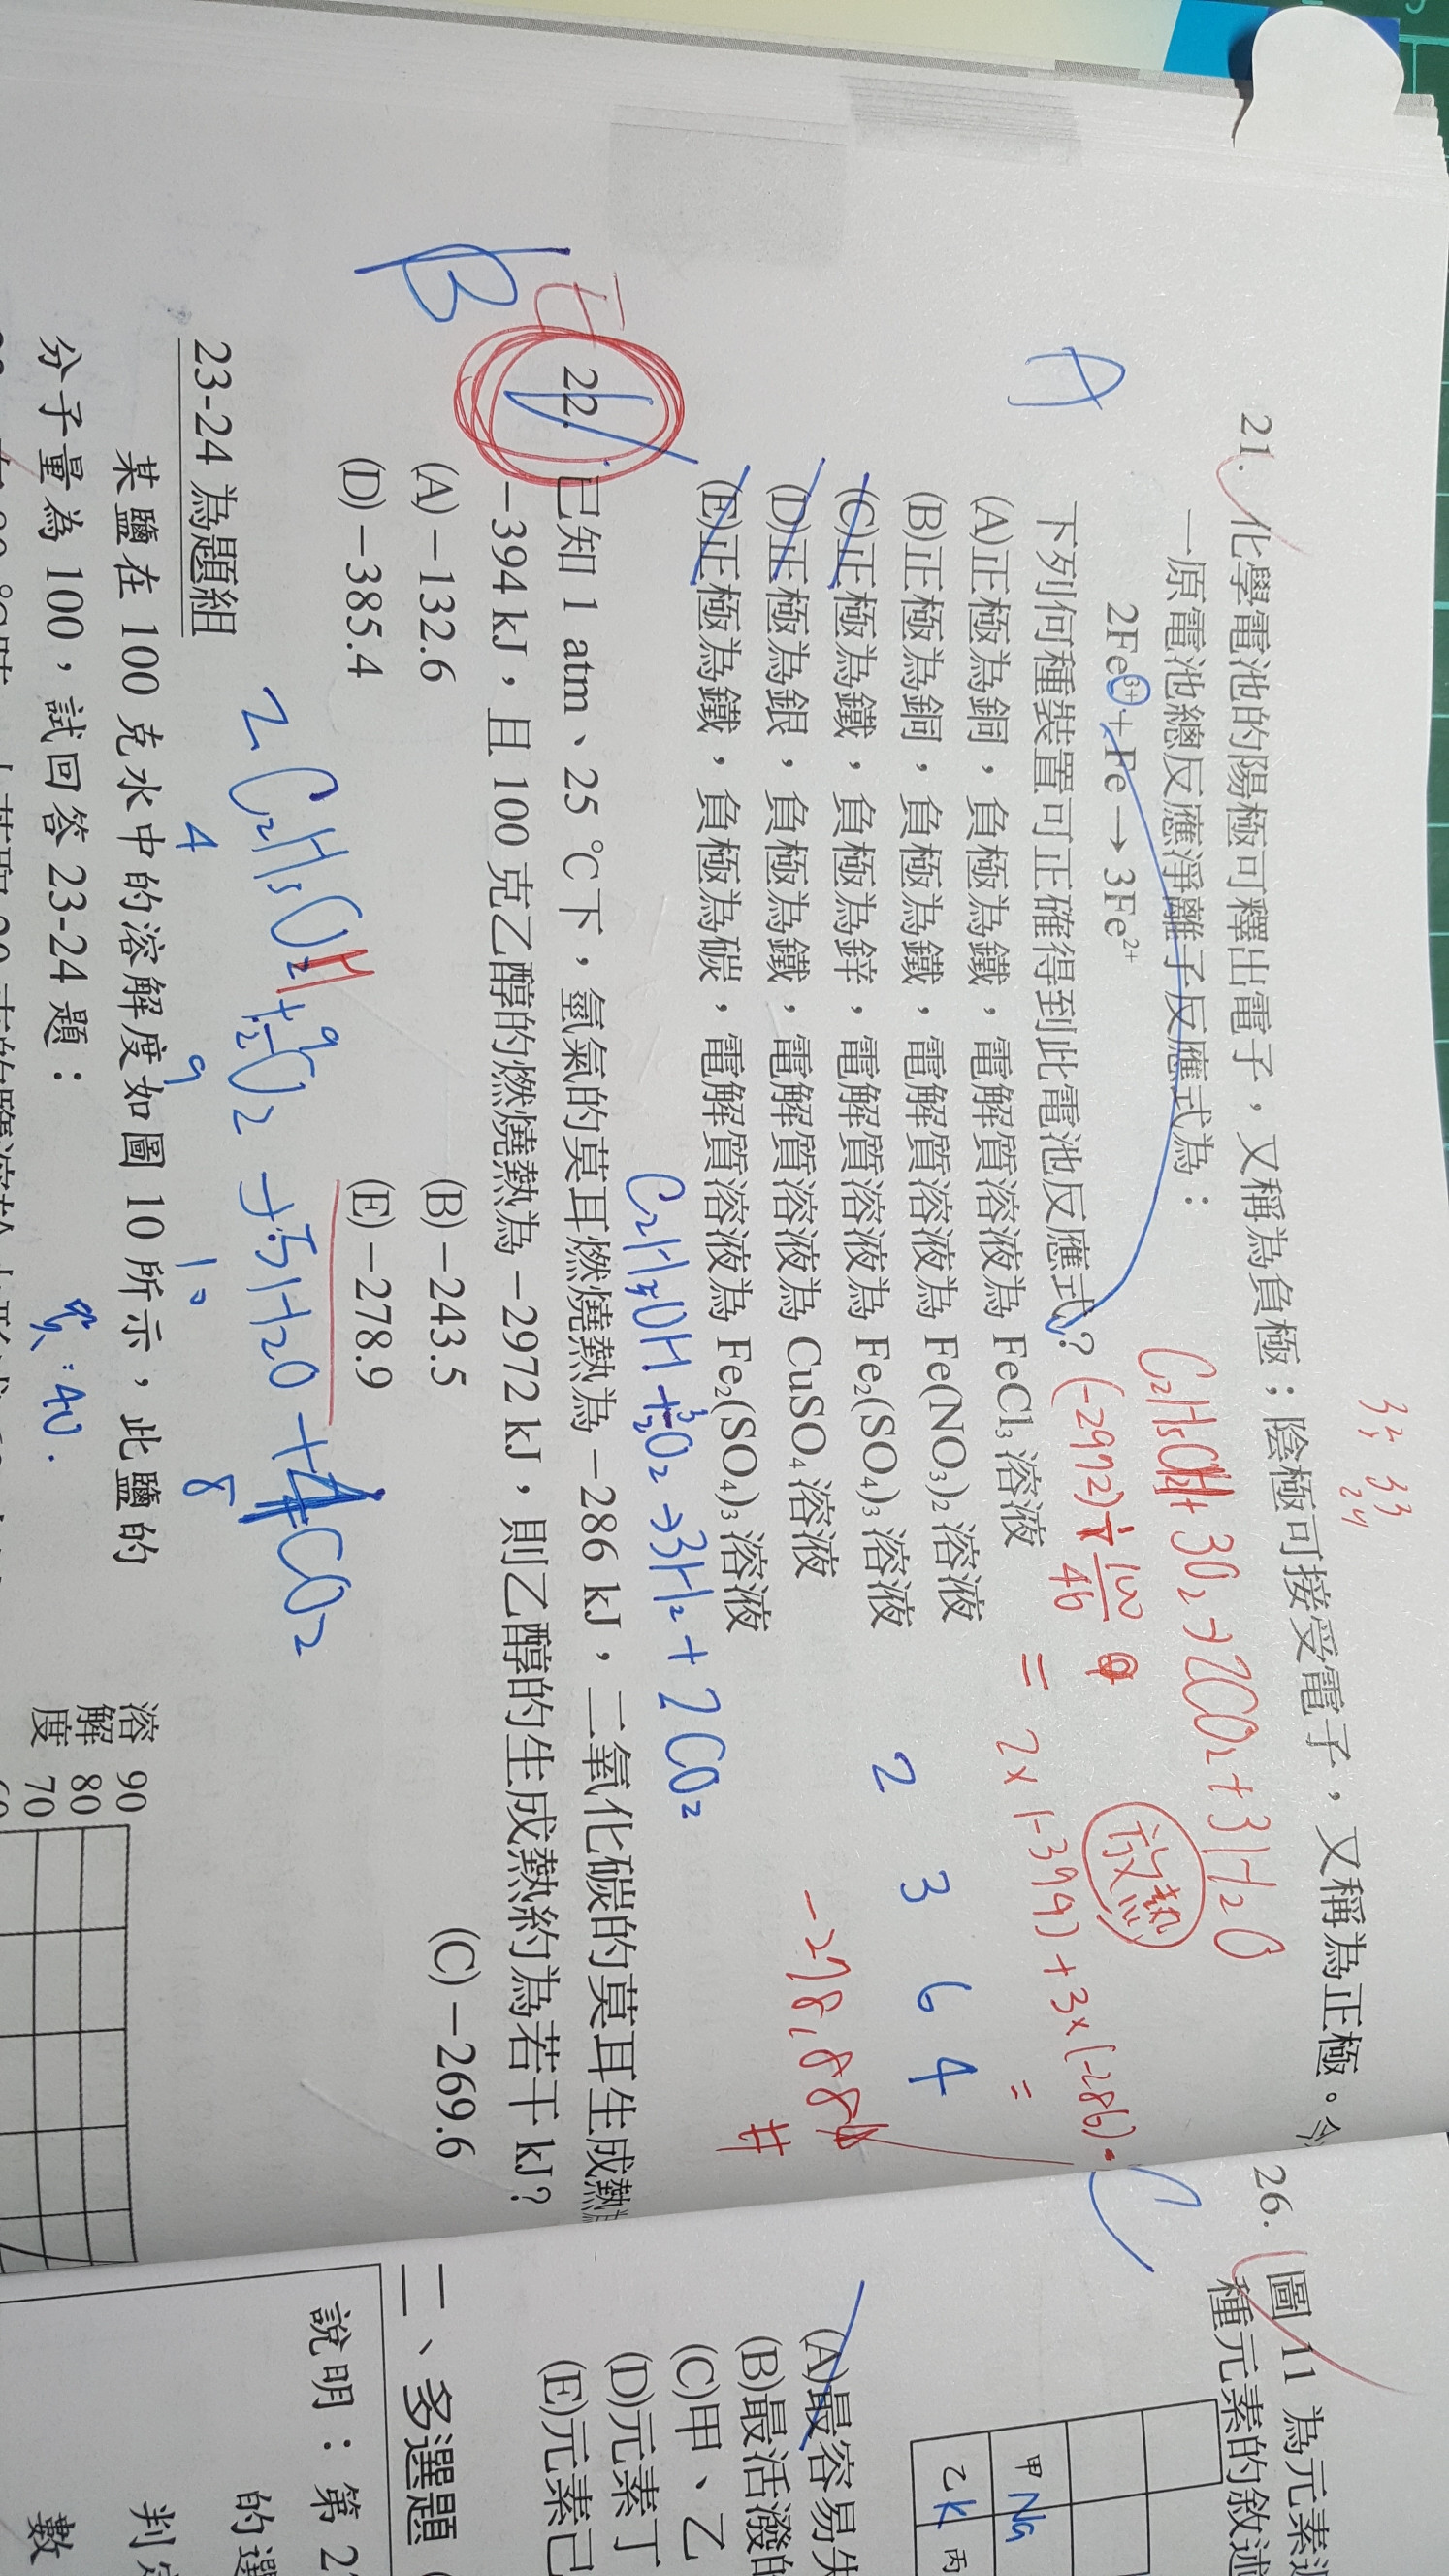 21. 化學電池的陽極可釋出電子，又稱為負極；陰極可接受電子，又稱為正極。今
一原電池總反應淨離子反應式為：
2Fe³⁺+Fe→3Fe²⁺
下列何種裝置可正確得到此電池反應式？
(A)正極為銅，負極為鐵，電解質溶液為 FeCl₃ 溶液
(B)正極為銅，負極為鐵，電解質溶液為 Fe(NO₃)₂ 溶液
(C)正極為鐵，負極為鋅，電解質溶液為 Fe₂(SO₄)₃ 溶液
(D)正極為銀，負極為鐵，電解質溶液為 CuSO₄ 溶液
(E)正極為鐵，負極為碳，電解質溶液為 Fe₂(SO₄)₃ 溶液
A
C₂H₅OH+3O₂→2CO₂+3H₂O
放熱
= 2×(-394)+3×(-286)
=
-278.88
#
2 3 6 4
C₂H₅OH+3O₂→3H₂+2CO₂
E
B
22. 已知 1 atm、25 ℃下，氫氣的莫耳燃燒熱為－286 kJ，二氧化碳的莫耳生成熱
－394 kJ，且 100 克乙醇的燃燒熱為－2972 kJ，則乙醇的生成熱約為若干 kJ？
(A)－132.6 (B)－243.5 (C)－269.6
(D)－385.4 (E)－278.9
4 9 10 8
23-24 為題組
某鹽在 100 克水中的溶解度如圖 10 所示，此鹽的
分子量為 100，試回答 23-24 題：
溶解度
90
80
70
C
26. 圖 11 為元素週
種元素的敘述
甲 Na
乙 K
丙
(A)最容易失
(B)最活潑的
(C)甲、乙
(D)元素丁
(E)元素己
二、多選題
說明：第 2
的選
判定
數